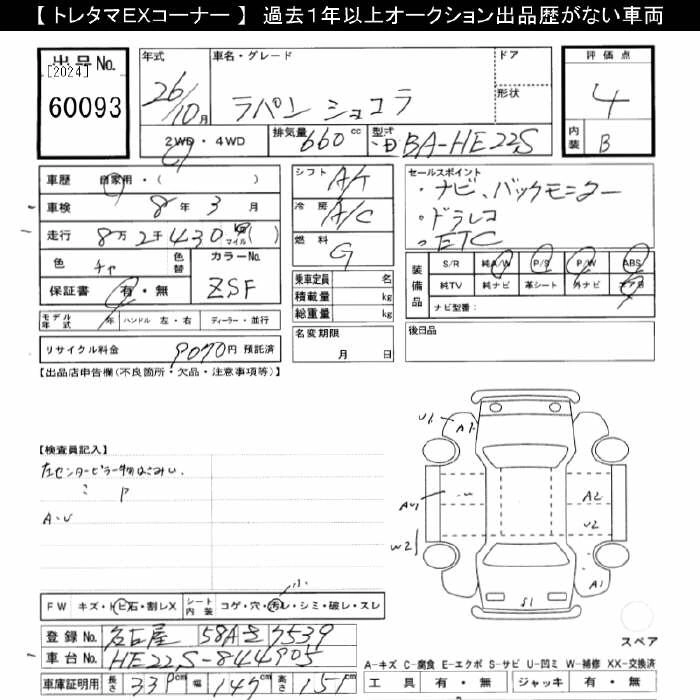 【 トレタマEXコーナー 】 過去1年以上オークション出品歴がない車両
出品No.
[2024]
60093
年式
26/10月
車名・グレード
ラパン ショコラ
ドア
形状
評価点
4
内装
B
2WD・4WD
排気量 660 cc
型式 DBA-HE22S
車歴 自家用・( )
車検 8年 3月
走行 8万2千430 マイル( )
色 チャ
色替
カラーNo.
ZSF
保証書 有・無
モデル年式 年
ハンドル 左・右
ディーラー・並行
リサイクル料金 9070円 預託済
シフト A/T
冷房 A/C
燃料 G
乗車定員 名
積載量 kg
総重量 kg
名変期限
月 日
セールスポイント
・ナビ、バックモニター
・ドラレコ
・ETC
装備品
S/R 純A/W P/S P/W ABS
純TV 純ナビ 革シート 外ナビ エアB
ナビ型番:
後日品
【出品店申告欄(不良箇所・欠品・注意事項等)】
【検査員記入】
左センターピラー物はさみU.
ミ P
A・U
U1
A1
AU1
W2
A2
U2
A1
S1
スペア
FW キズ・トビ石・割レX
シート内装 コゲ・穴・汚レ・シミ・破レ・スレ
小
登録No. 名古屋 58A を 7539
車台No. HE22S-844905
車庫証明用 長さ 339cm 幅 147cm 高さ 151cm
A-キズ C-腐食 E-エクボ S-サビ U-凹ミ W-補修 XX-交換済
工具 有・無 ジャッキ 有・無